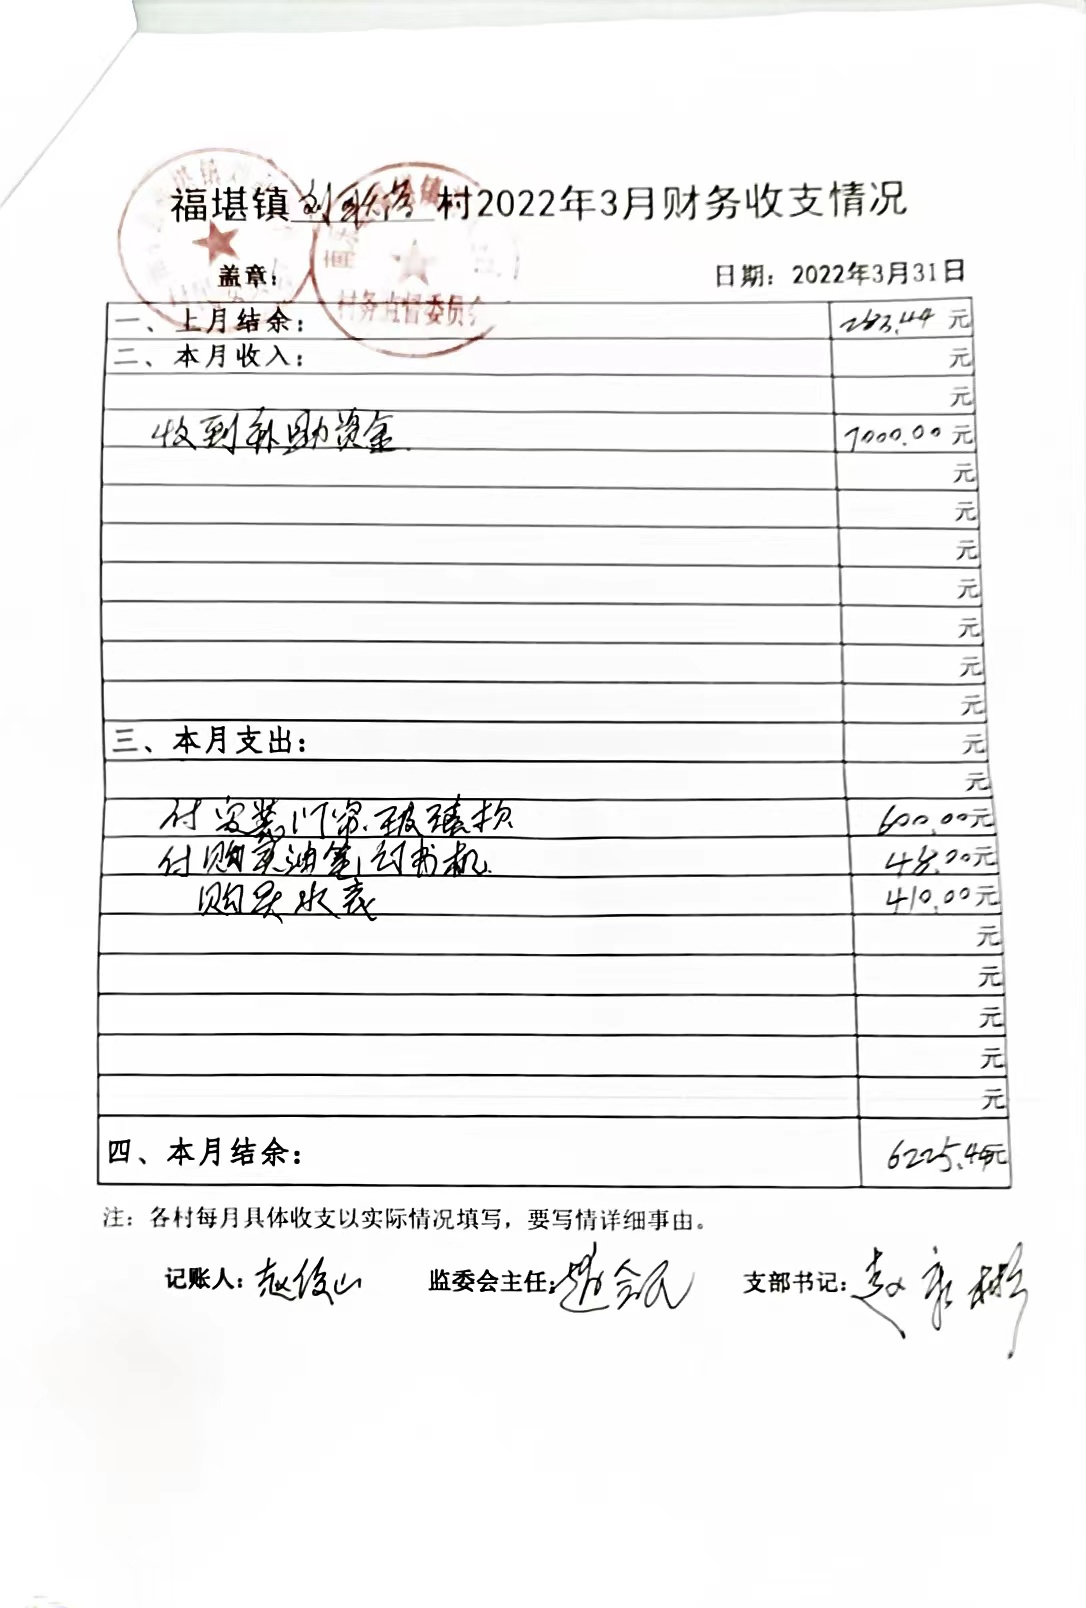 福堪镇 村2022年3月财务收支情况
盖章： 日期：2022年3月31日
村务监督委员会
一、上月结余： 283.44 元
二、本月收入： 元
元
收到补助资金 7000.00 元
元
元
元
元
元
元
元
三、本月支出： 元
元
付安装门帘.玻璃款 600.00元
付购买油笔,订书机 48.00元
购买水表 410.00元
元
元
元
元
元
四、本月结余： 6225.44元
注：各村每月具体收支以实际情况填写，要写情详细事由。
记账人：赵俊山 监委会主任：赵会民 支部书记：赵